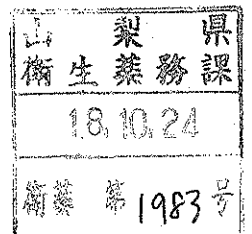 山梨県
衛生薬務課
18.10.24
衛薬 第1983号